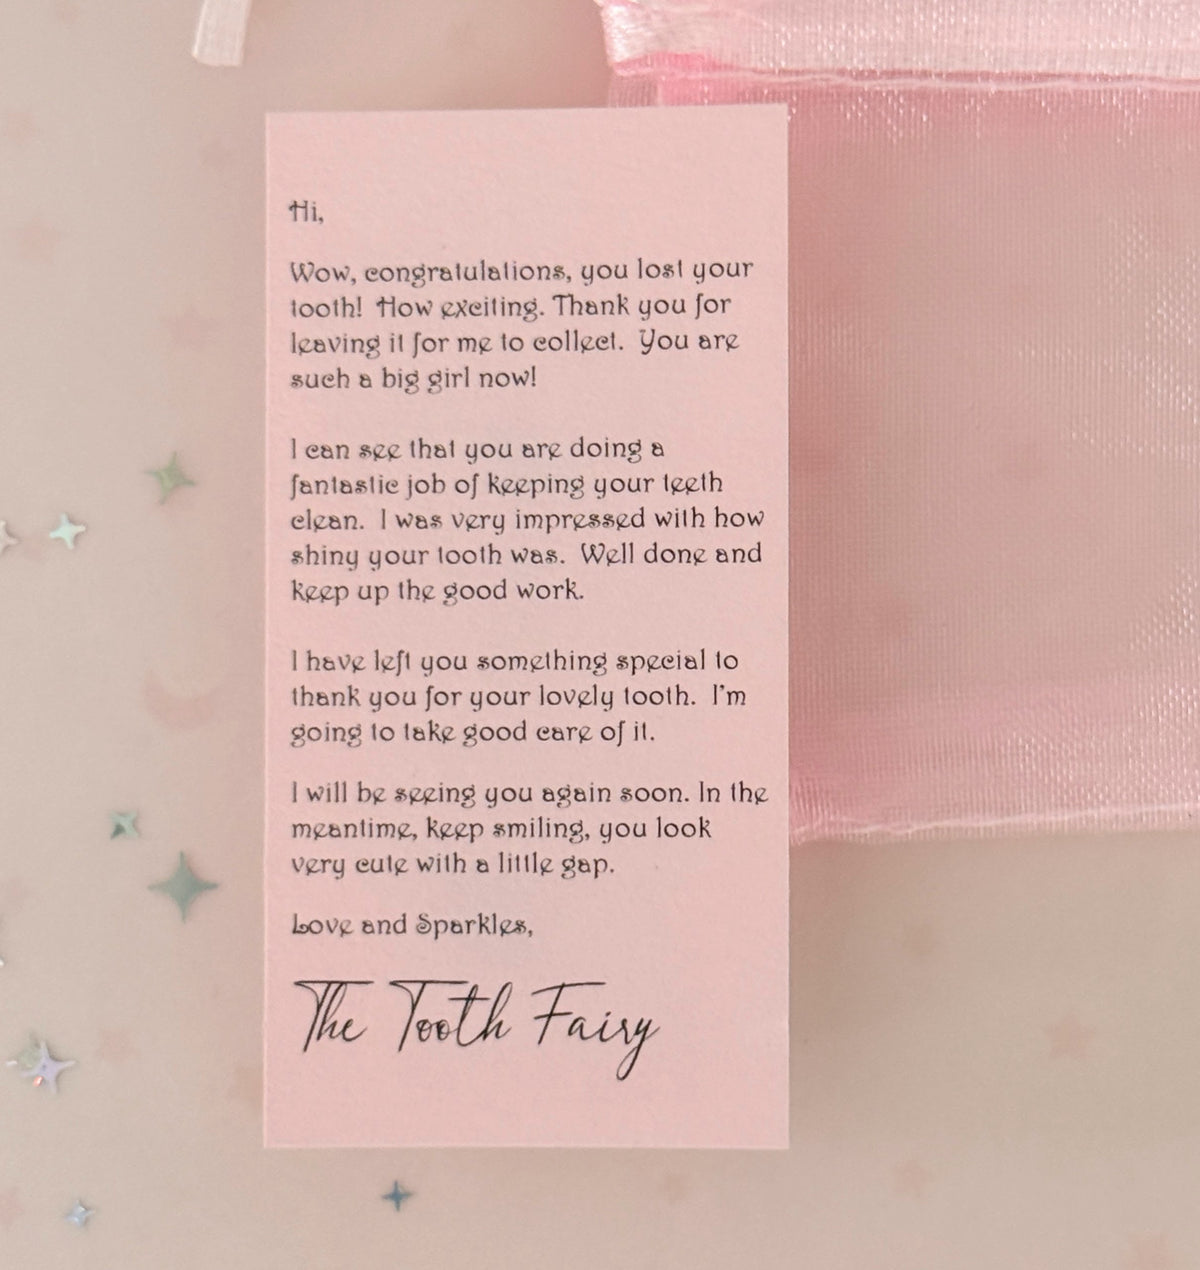 Hi,
Wow, congratulations, you lost your
tooth! How exciting. Thank you for
leaving it for me to collect. You are
such a big girl now!
I can see that you are doing a
fantastic job of keeping your teeth
clean. I was very impressed with how
shiny your tooth was. Well done and
keep up the good work.
I have left you something special to
thank you for your lovely tooth. I'm
going to take good care of it.
I will be seeing you again soon. In the
meantime, keep smiling, you look
very cute with a little gap.
Love and Sparkles,
The Tooth Fairy